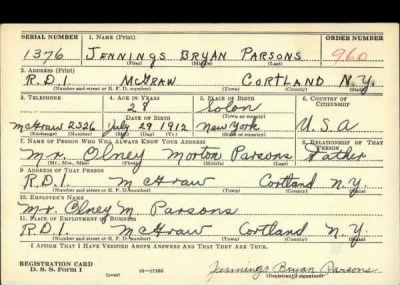 SERIAL NUMBER 1. NAME (Print) ORDER NUMBER
1376 JENNINGS BRYAN PARSONS 960
(First) (Middle) (Last)
2. ADDRESS (Print)
R.D.1. McGRAW CORTLAND N.Y.
(Number and street or R. F. D. number) (Town) (County) (State)
3. TELEPHONE 4. AGE IN YEARS 5. PLACE OF BIRTH 6. COUNTRY OF CITIZENSHIP
28 Solon
DATE OF BIRTH (Town or county)
McGraw 2526 July 29 1912 New York U.S.A
(Exchange) (Number) (Mo.) (Day) (Yr.) (State or country)
7. NAME OF PERSON WHO WILL ALWAYS KNOW YOUR ADDRESS 8. RELATIONSHIP OF THAT PERSON
Mr. Olney Morton Parsons Father
(Mr., Mrs., Miss) (First) (Middle) (Last)
9. ADDRESS OF THAT PERSON
R.D.1. McGraw Cortland N.Y.
(Number and street or R. F. D. number) (Town) (County) (State)
10. EMPLOYER'S NAME
Mr. Olney M. Parsons
11. PLACE OF EMPLOYMENT OR BUSINESS
R.D.1. McGraw Cortland N.Y.
(Number and street or R. F. D. number) (Town) (County) (State)
I AFFIRM THAT I HAVE VERIFIED ABOVE ANSWERS AND THAT THEY ARE TRUE.
REGISTRATION CARD
D. S. S. FORM 1 (over) 16—17105 Jennings Bryan Parsons
(Registrant's signature)